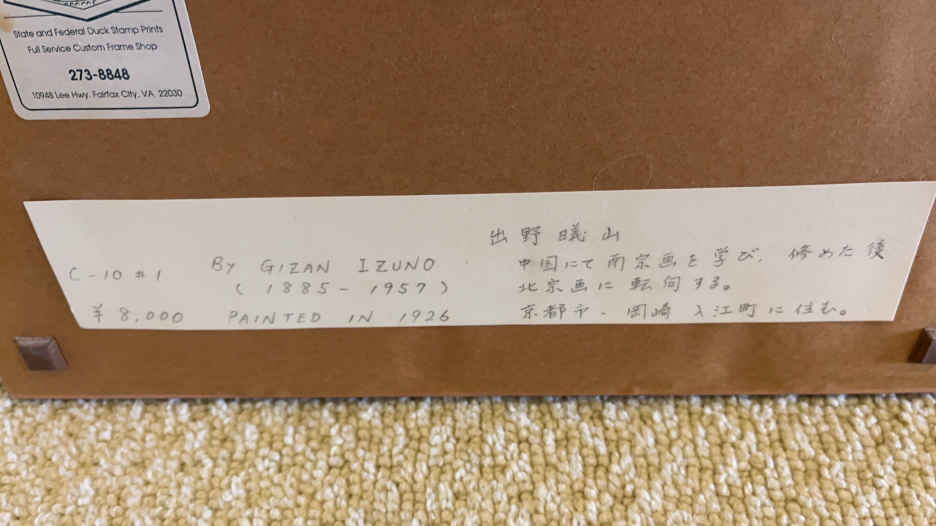 State and Federal Duck Stamp Prints
Full Service Custom Frame Shop
273-8848
10948 Lee Hwy. Fairfax City, VA. 22030
C-10 #1
¥ 8,000
BY GIZAN IZUNO
(1885-1957)
PAINTED IN 1926
出野曦山
中国にて南宗画を学び、修めた後
北宗画に転向する。
京都市・岡崎入江町に住む。